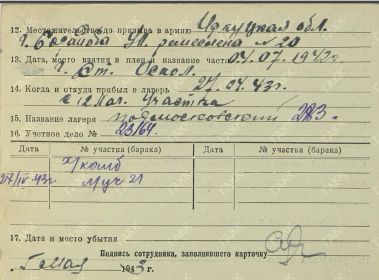 12. Местожительство до призыва в армию Иркуцкая обл.
г. Бодайбо ул. ремеслена №20
13. Дата, место взятия в плен и название части 04.07.1942г.
г. Ст. Оскол.
14. Когда и откуда прибыл в лагерь 27.04.43г.
с 12 лаг. участка
15. Название лагеря подмосковский 283
16. Учетное дело № 23164
Дата № участка (барака) Дата № участка (барака)
27/IV-43г
17. Дата и место убытия
Подпись сотрудника, заполнявшего карточку
1943 г.